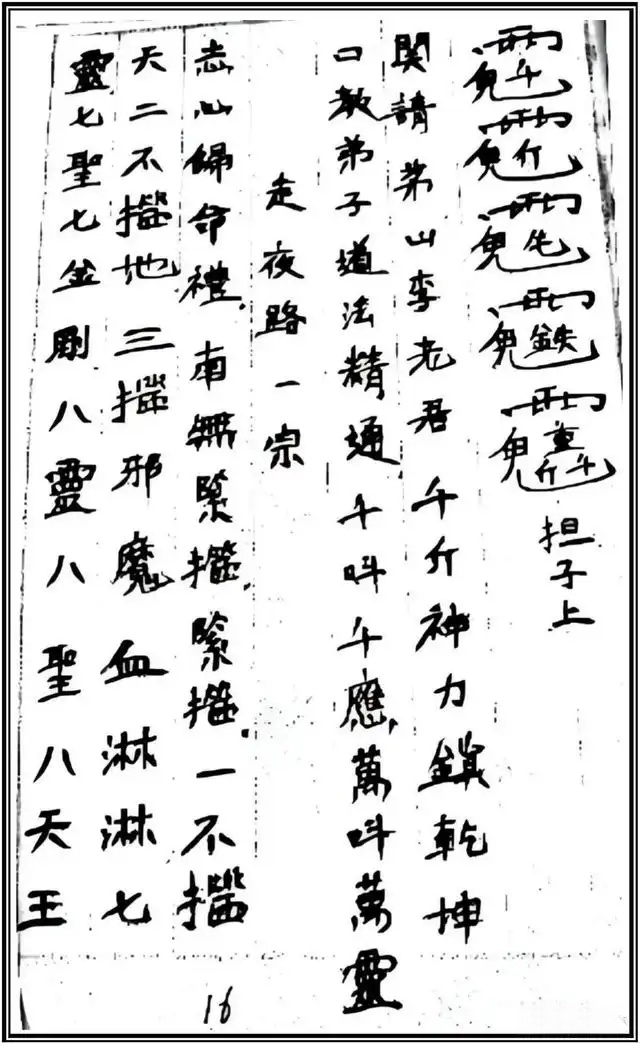 担子上
関請茅山李老君 千斤神力鎮乾坤
口教弟子道法精通千叫千應萬叫萬靈
走夜路一宗
志心歸命禮南無緊緊一不
天二不地三邪魔血淋淋七
靈七聖七金剛八靈八聖八天王
16